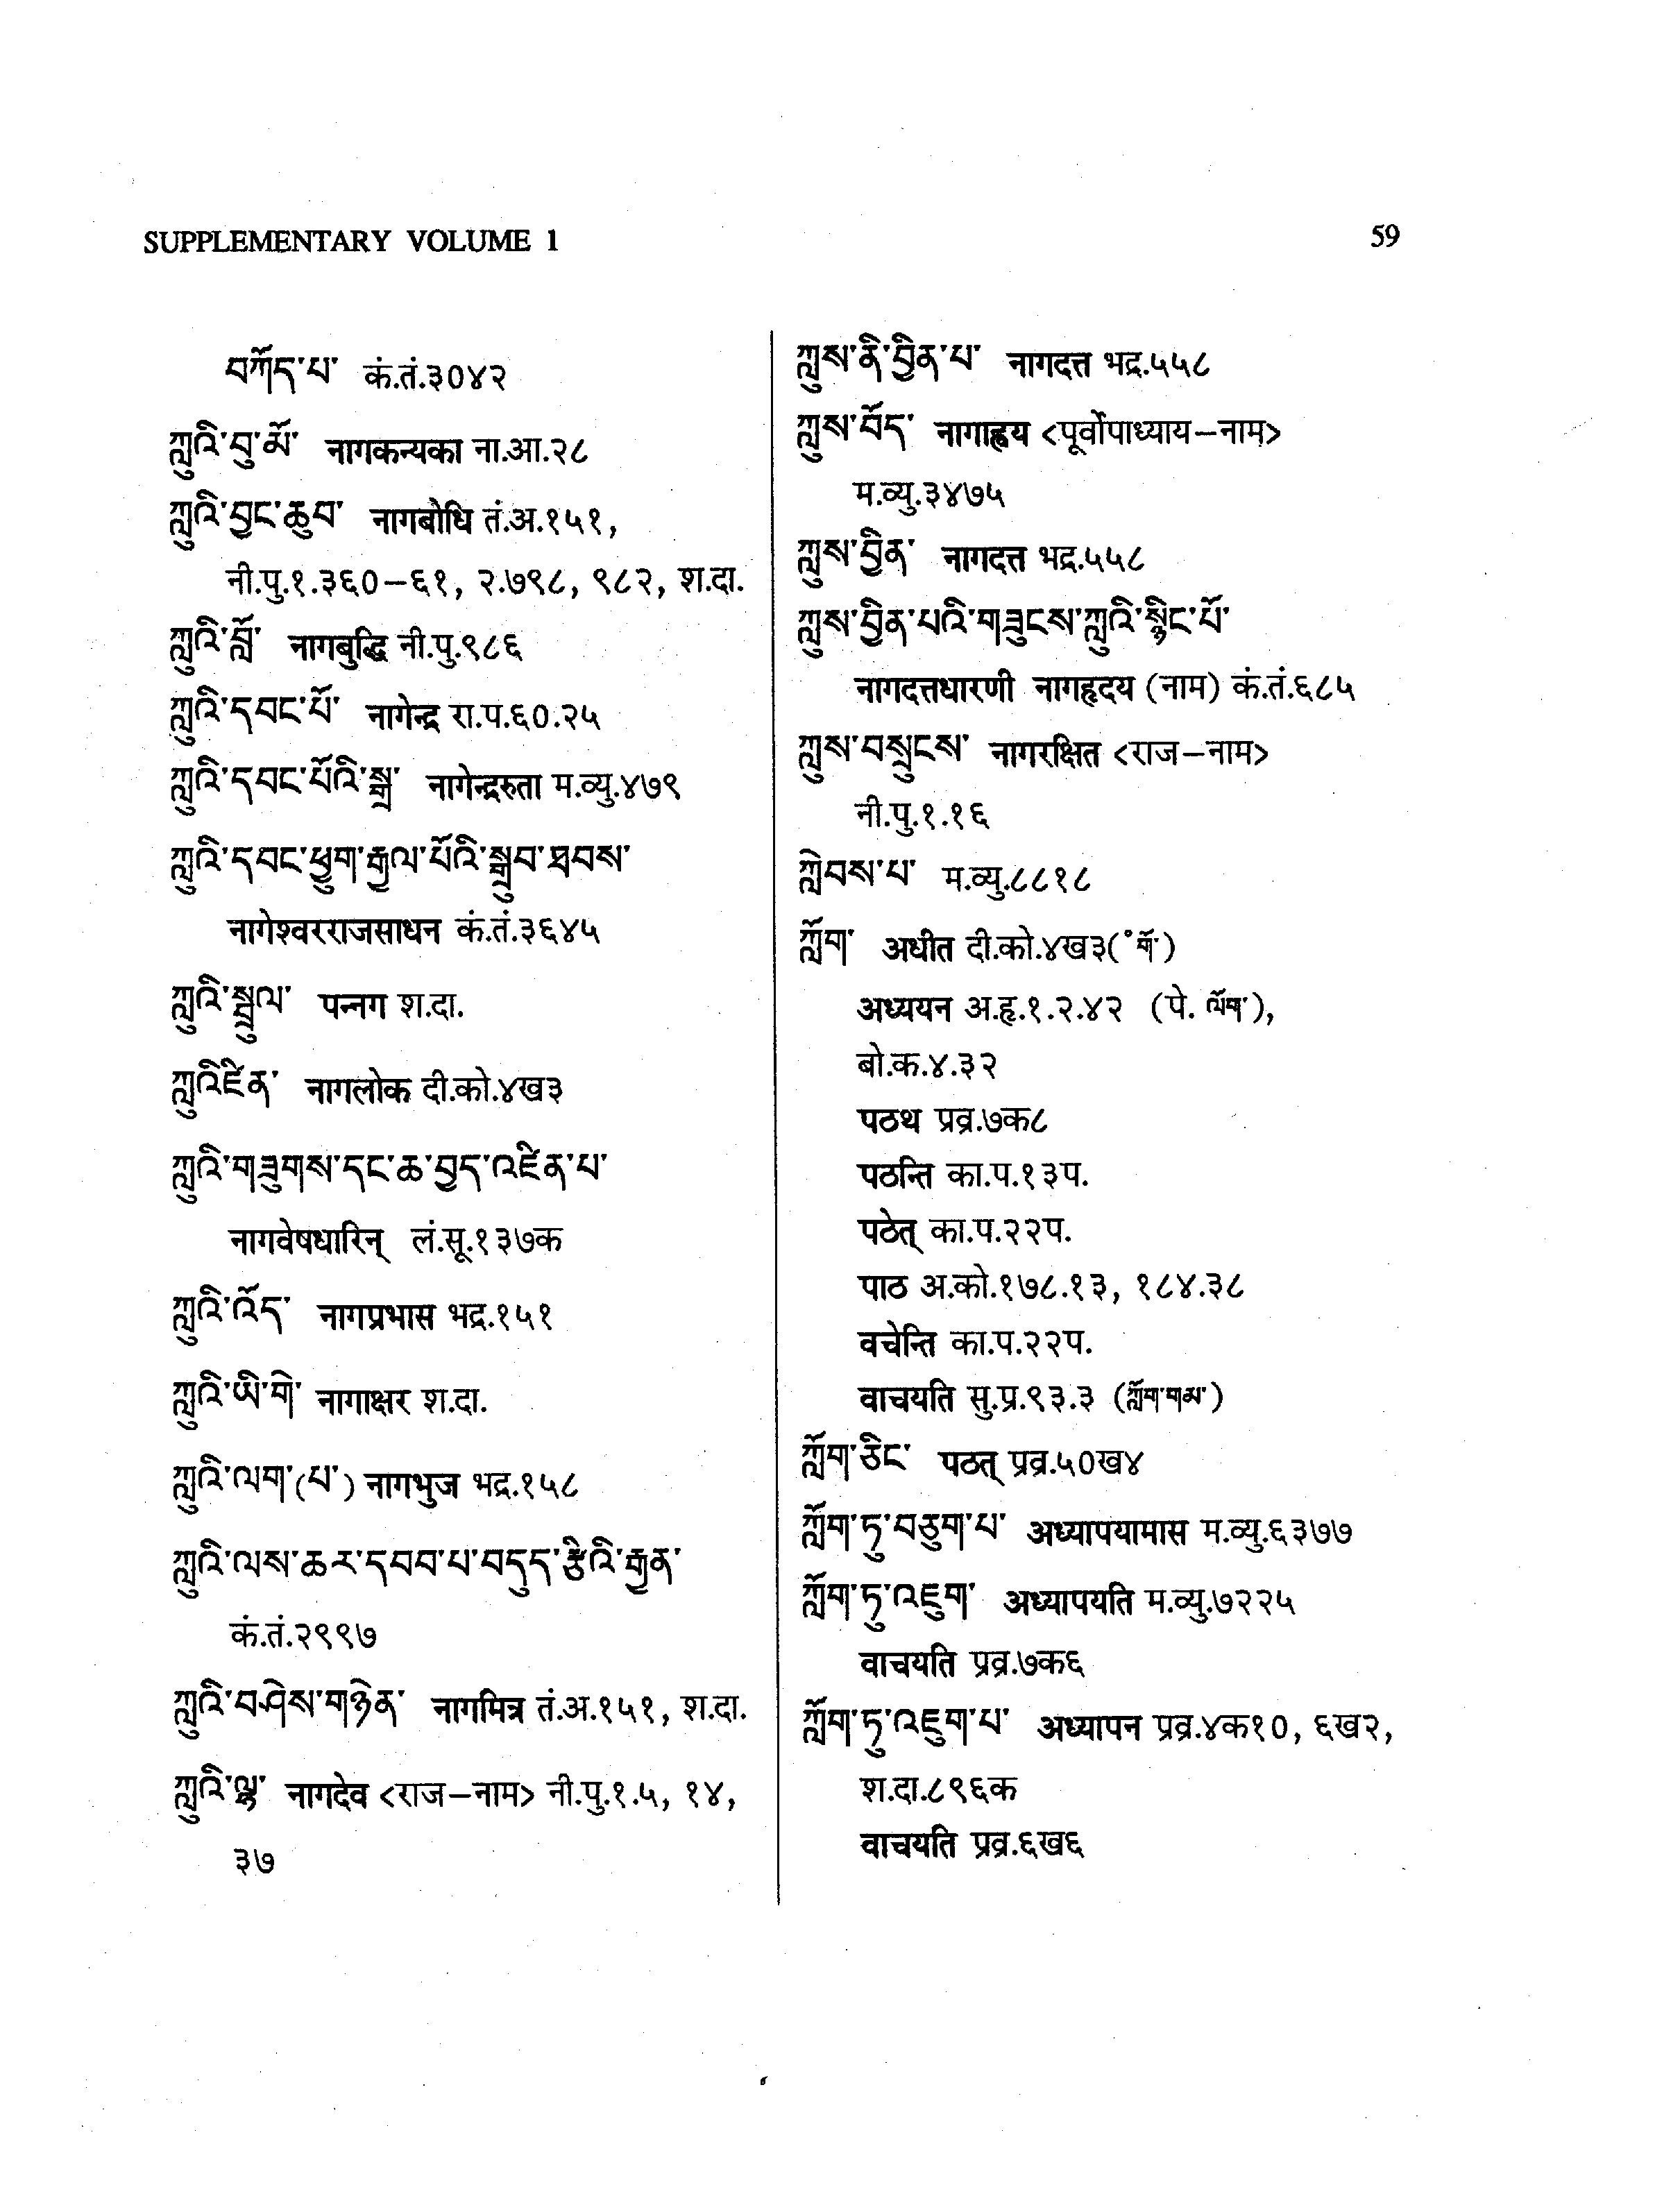 SUPPLEMENTARY VOLUME 1
59
བཀོད་པ་ कं.तं.३०४२
ཀླུའི་བུ་མོ་ नागकन्यका ना.आ.२८
ཀླུའི་བྱང་ཆུབ་ नागबोधि तं.अ.१५१,
नी.पु.१.३६०-६१, २.७९८, ९८२, श.दा.
ཀླུའི་བློ་ नागबुद्धि नी.पु.९८६
ཀླུའི་དབང་པོ་ नागेन्द्र रा.प.६०.२५
ཀླུའི་དབང་པོའི་སྒྲ་ नागेन्द्ररुता म.व्यु.४७९
ཀླུའི་དབང་ཕྱུག་རྒྱལ་པོའི་སྒྲུབ་ཐབས་
नागेश्वरराजसाधन कं.तं.३६४५
ཀླུའི་སྦྲུལ་ पन्नग श.दा.
ཀླུའིཇིན་ नागलोक दी.को.४ख३
ཀླུའི་གཟུགས་དང་ཆ་བྱད་འཛིན་པ་
नागवेषधारिन् लं.सू.१३७क
ཀླུའི་འོད་ नागप्रभास भद्र.१५१
ཀླུའི་ཡི་གེ་ नागाक्षर श.दा.
ཀླུའི་ལག་(པ་) नागभुज भद्र.१५८
ཀླུའི་ལས་ཆར་དབབ་པ་བདུད་རྩིའི་རྒྱན་
कं.तं.२९९७
ཀླུའི་བཤེས་གཉེན་ नागमित्र तं.अ.१५१, श.दा.
ཀླུའི་ལྷ་ नागदेव <राज-नाम> नी.पु.१.५, १४,
३७
ཀླུས་ནི་བྱིན་པ་ नागदत्त भद्र.५५८
ཀླུས་བོད་ नागाह्वय <पूर्वोपाध्याय-नाम>
म.व्यु.३४७५
ཀླུས་བྱིན་ नागदत्त भद्र.५५८
ཀླུས་བྱིན་པའི་གཟུངས་ཀླུའི་སྙིང་པོ་
नागदत्तधारणी नागहृदय (नाम) कं.तं.६८५
ཀླུས་བསྲུངས་ नागरक्षित <राज-नाम>
नी.पु.१.१६
ཀླེབས་པ་ म.व्यु.८८१८
ཀློག་ अधीत दी.को.४ख३(˚གོ་)
अध्ययन अ.हृ.१.२.४२ (पे. ལོག་),
बो.क.४.३२
पठथ प्रव्र.७क८
पठन्ति का.प.१३प.
पठेत् का.प.२२प.
पाठ अ.को.१७८.१३, १८४.३८
वचेन्ति का.प.२२प.
वाचयति सु.प्र.९३.३ (ཀློག་གམ་)
ཀློག་ཅིང་ पठत् प्रव्र.५०ख४
ཀློག་ཏུ་བཅུག་པ་ अध्यापयामास म.व्यु.६३७७
ཀློག་ཏུ་འཇུག་ अध्यापयति म.व्यु.७२२५
वाचयति प्रव्र.७क६
ཀློག་ཏུ་འཇུག་པ་ अध्यापन प्रव्र.४क१०, ६ख२,
श.दा.८९६क
वाचयति प्रव्र.६ख६